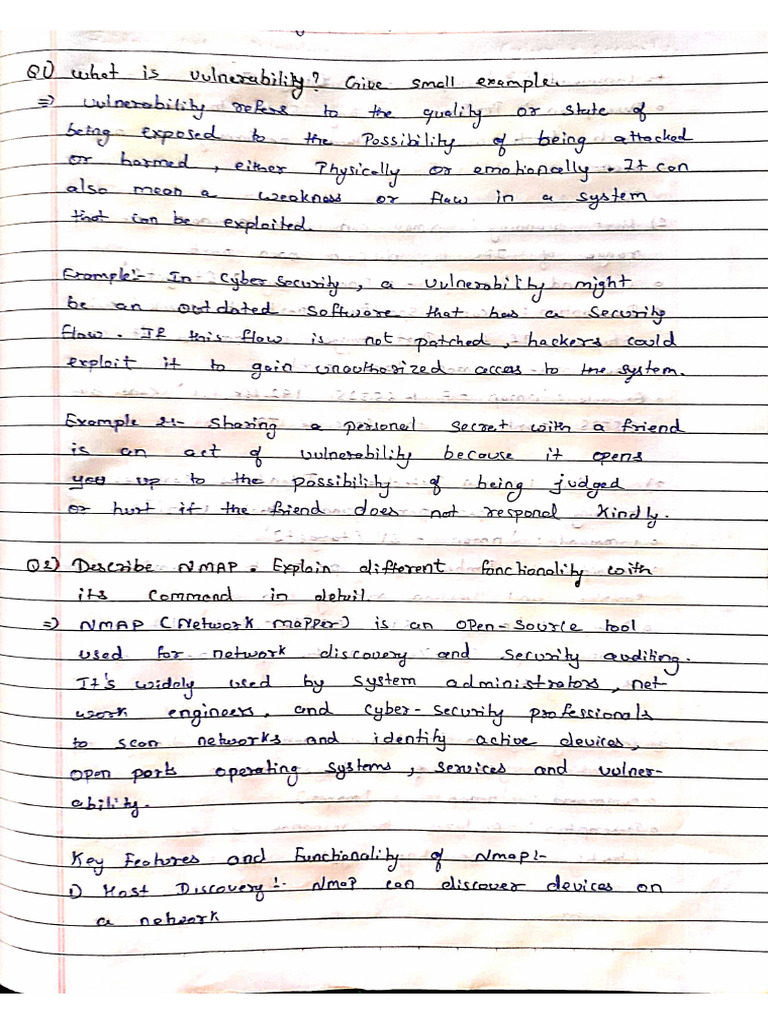 Q1) what is vulnerability? Give small example.
⇒ vulnerability refers to the quality or state of
being exposed to the Possibility of being attacked
or harmed, either Physically or emotionally. It can
also mean a weakness or flaw in a system
that can be exploited.
Example:- In cyber security, a vulnerability might
be an outdated software that has a security
flaw. If this flow is not patched, hackers could
exploit it to gain unauthorized access to the system.
Example 2:- Sharing a personal secret with a friend
is an act of vulnerability because it opens
you up to the possibility of being judged
or hurt if the friend does not respond kindly.
Q2) Describe NMAP. Explain different functionality with
its command in detail.
⇒ NMAP (Network mapper) is an open-source tool
used for network discovery and security auditing.
It's widely used by system administrators, net
work engineers, and cyber-security professionals
to scan networks and identify active devices,
open ports operating systems, services and vulner-
ability.
Key Features and Functionality of Nmap:-
1) Host Discovery:- Nmap can discover devices on
a network